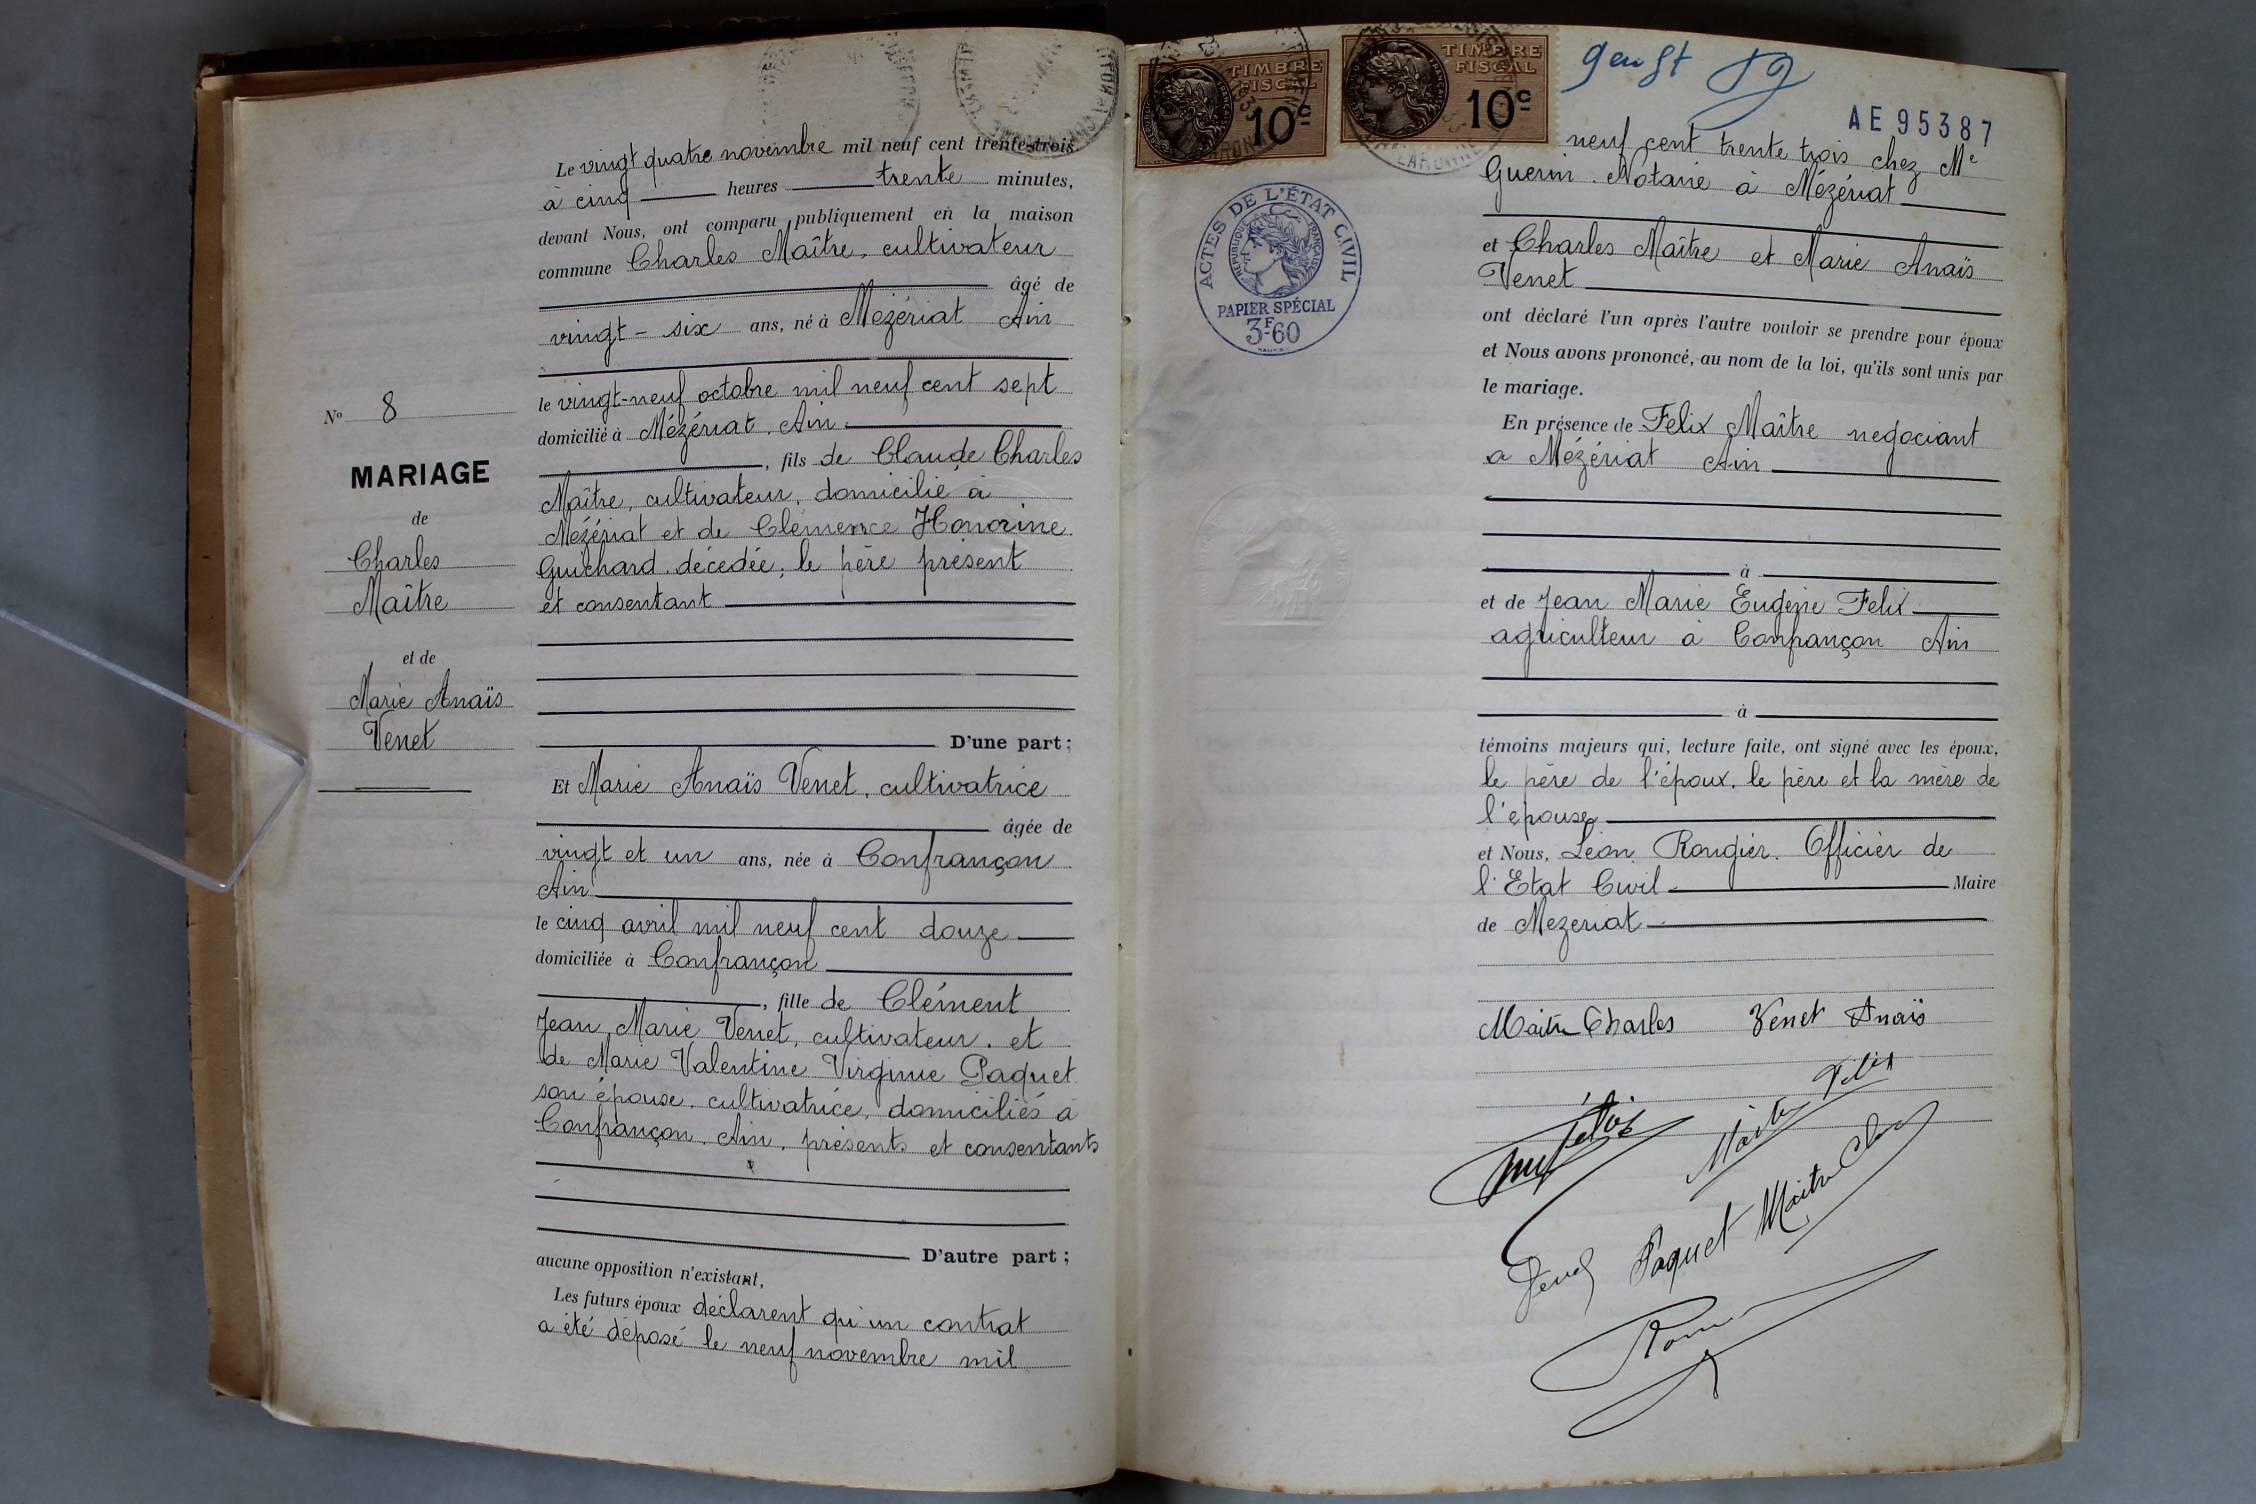 Le vingt quatre novembre mil neuf cent trente-trois
à cinq heures trente minutes,
devant Nous, ont comparu publiquement en la maison
commune Charles Maître, cultivateur
âgé de
vingt-six ans, né à Mézériat Ain
le vingt-neuf octobre mil neuf cent sept
domicilié à Mézériat. Ain.
, fils de Claude Charles
Maître, cultivateur, domicilié à
Mézériat et de Clémence Honorine
Guichard décédée; le père présent
et consentant
D'une part;
Nº 8
MARIAGE
de
Charles
Maître
et de
Marie Anaïs
Venet
Et Marie Anaïs Venet, cultivatrice
âgée de
vingt et un ans, née à Confrançon
Ain
le cinq avril mil neuf cent douze
domiciliée à Confrançon
, fille de Clément
Jean Marie Venet, cultivateur. et
de Marie Valentine Virginie Paquet
son épouse, cultivatrice, domiciliés à
Confrançon. Ain, présents et consentants
D'autre part;
aucune opposition n'existant,
Les futurs époux déclarent qu'un contrat
a été déposé le neuf novembre mil
TIMBRE
FISCAL
10c
TIMBRE
FISCAL
10c
AE 95387
ACTES DE L'ÉTAT CIVIL
RÉPUBLIQUE FRANÇAISE
PAPIER SPÉCIAL
3F60
neuf cent trente trois chez Me
Guerin. Notaire à Mézériat
et Charles Maître et Marie Anaïs
Venet
ont déclaré l'un après l'autre vouloir se prendre pour époux
et Nous avons prononcé, au nom de la loi, qu'ils sont unis par
le mariage.
En présence de Felix Maître negociant
a Mézériat Ain
à
et de Jean Marie Eugène Felix
agriculteur à Confrançon Ain
à
témoins majeurs qui, lecture faite, ont signé avec les époux,
le père de l'époux. le père et la mère de
l'epouse
et Nous, Léon Rougier. Officier de
l'Etat Civil Maire
de Mezeriat
Maitre Charles Venet Anaïs
Maitre Felix
Venet Paquet Maitre